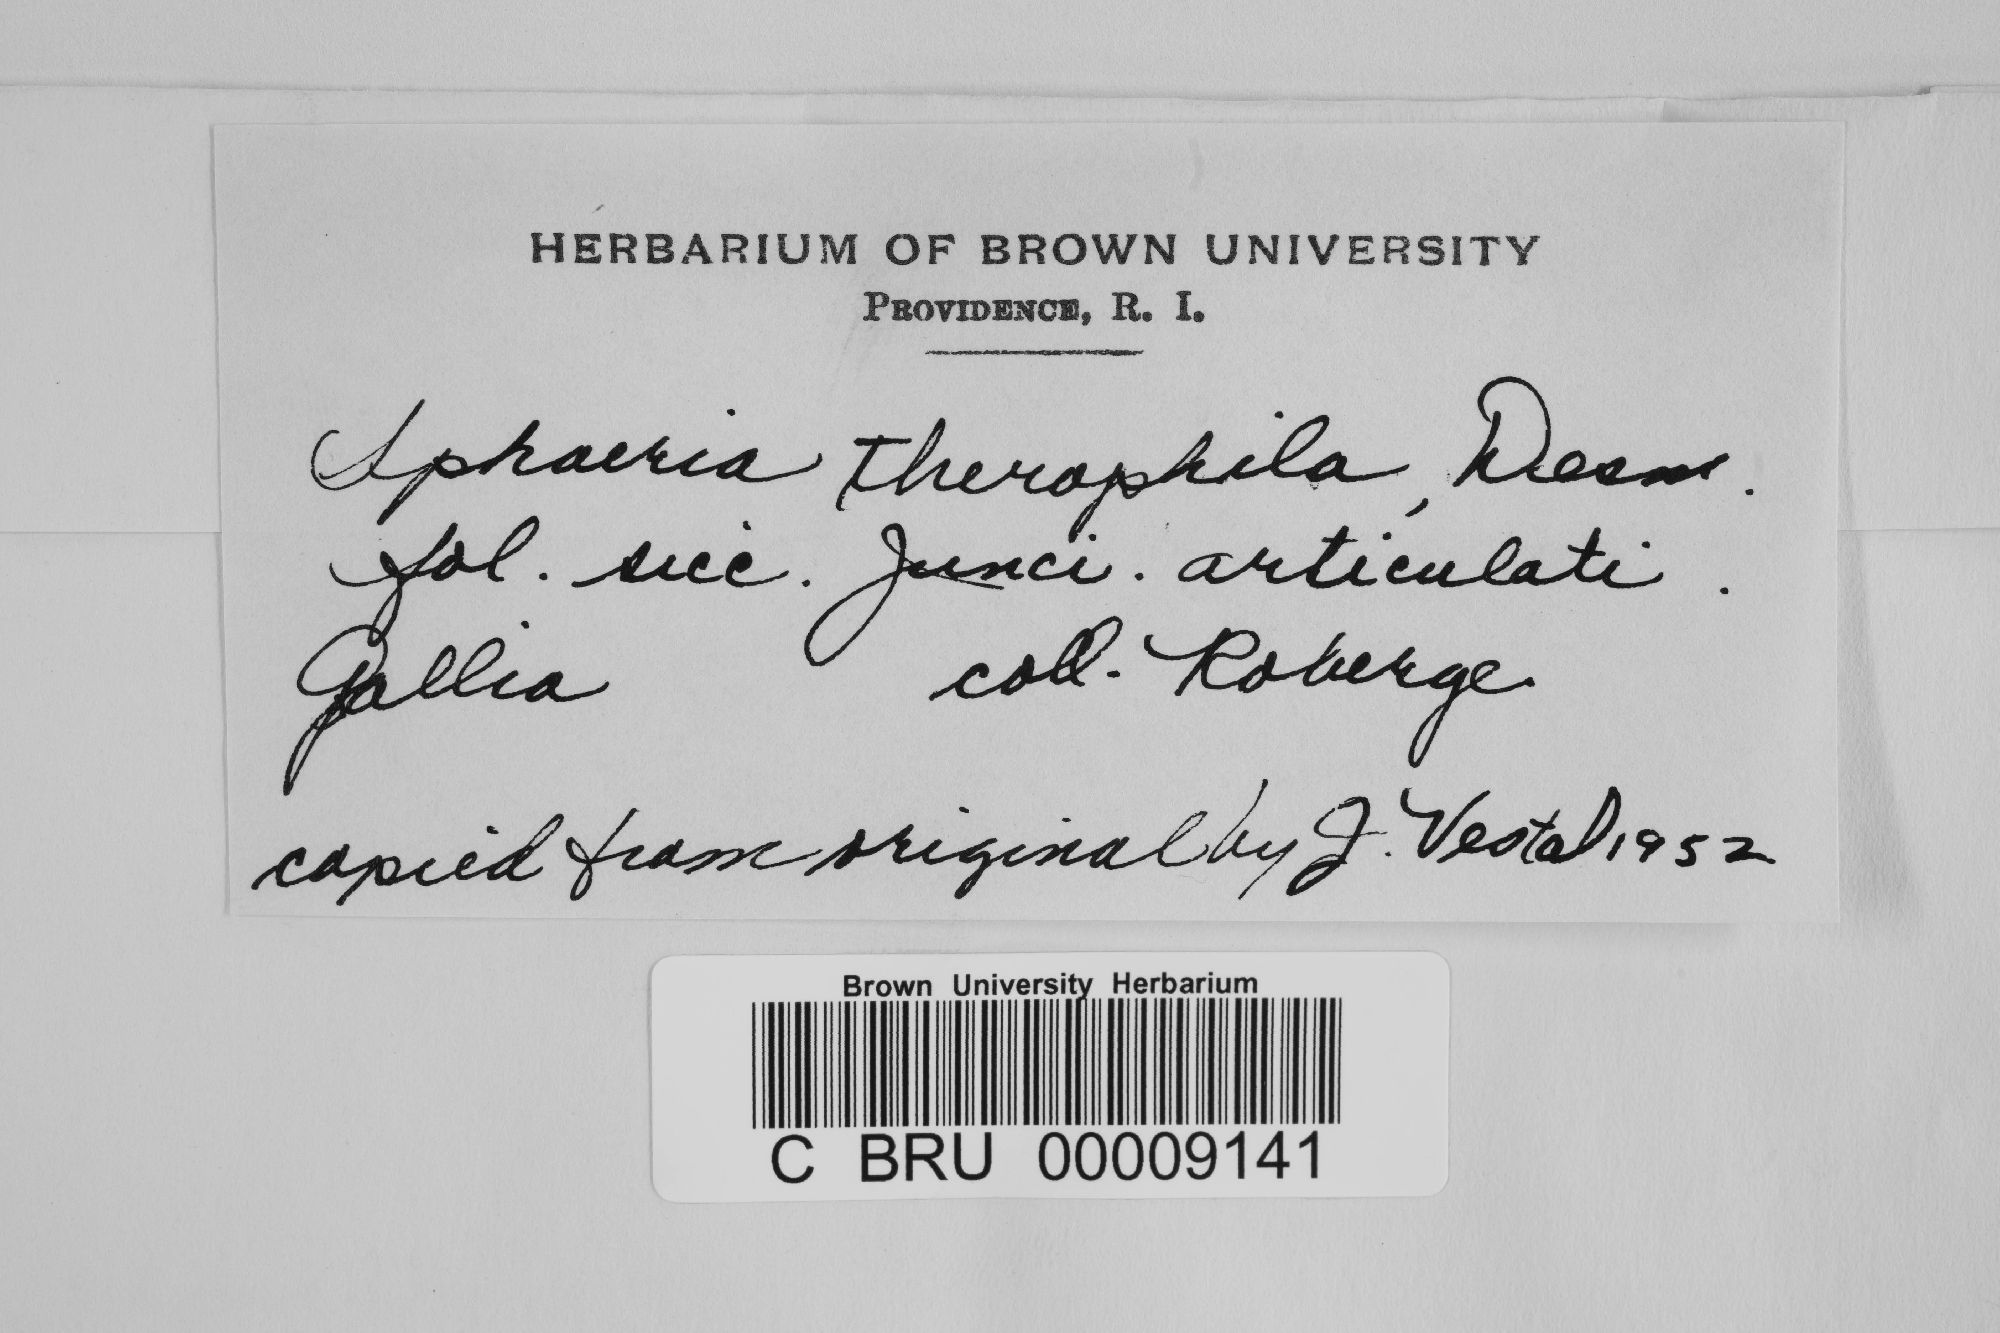 HERBARIUM OF BROWN UNIVERSITY
PROVIDENCE, R. I.
Sphaeria therophila, Desm.
fol. sicc. Junci. articulati.
Gallia coll. Roberge.
copied from original by J. Vestal 1952
Brown University Herbarium
C BRU 00009141